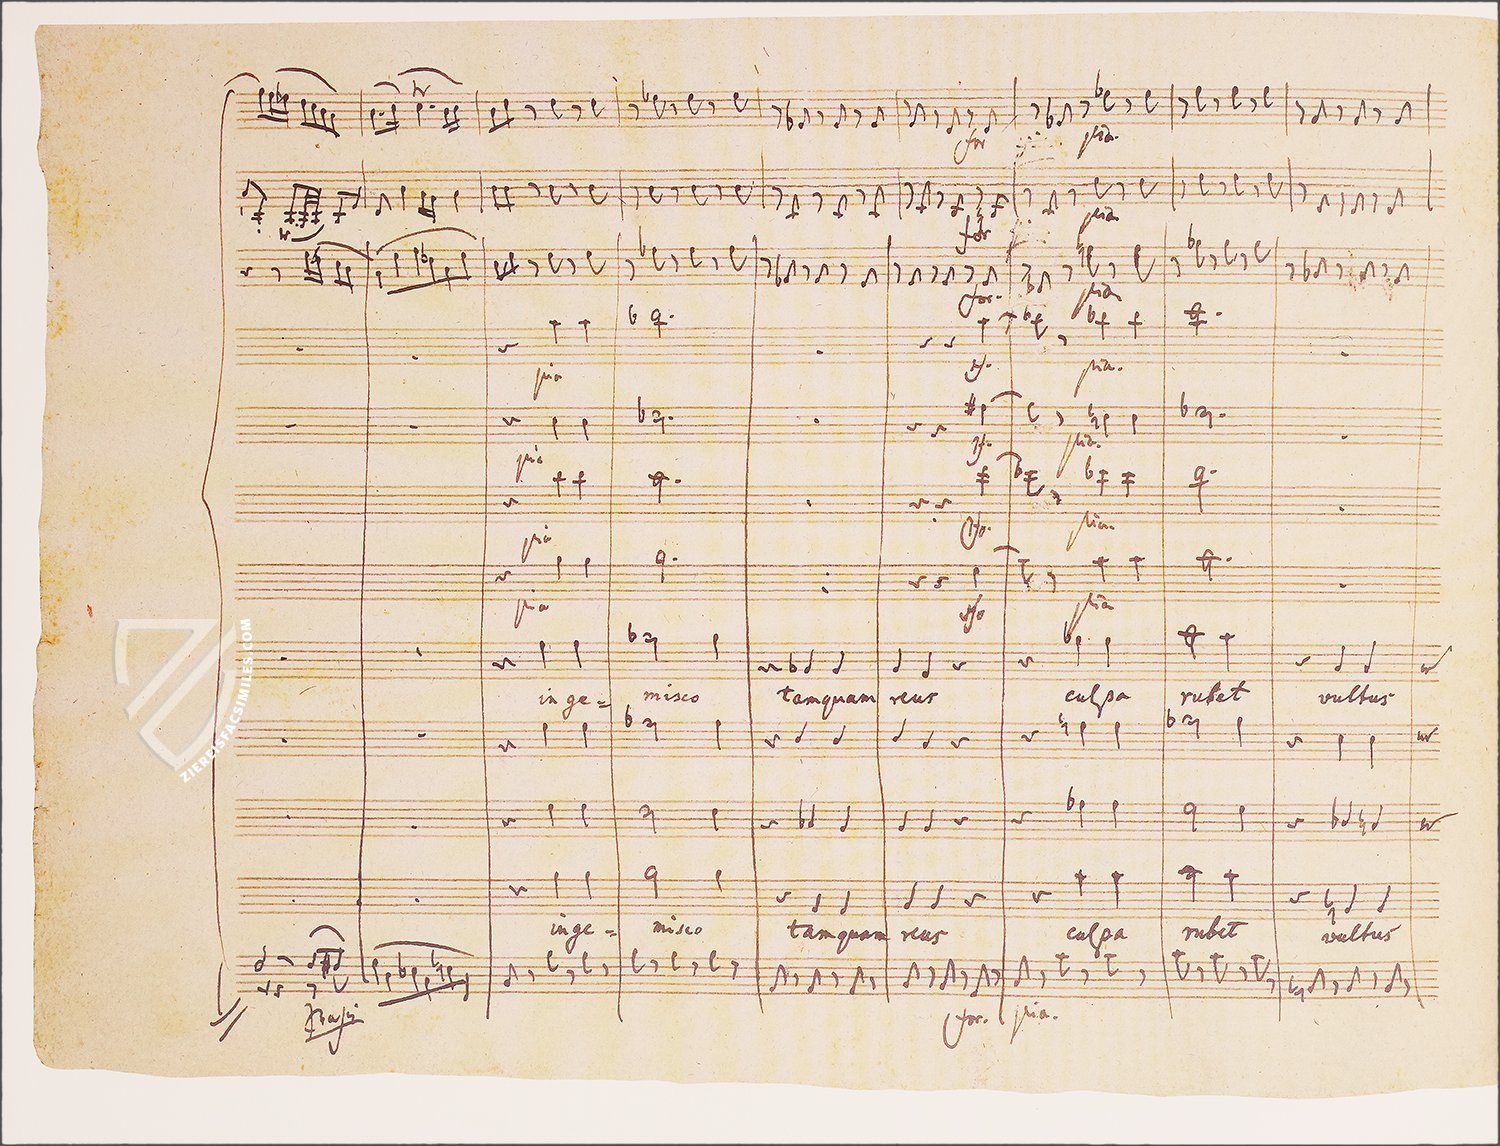 for pia.
for pia
for. pia
pia sf. pia.
pia sf. pia.
pia sfo. pia.
pia sfo pia
inge = misco tamquam reus culpa rubet vultus
inge = misco tamquam reus culpa rubet vultus
Bassi for. pia.
ZIEREISFACSIMILES.COM